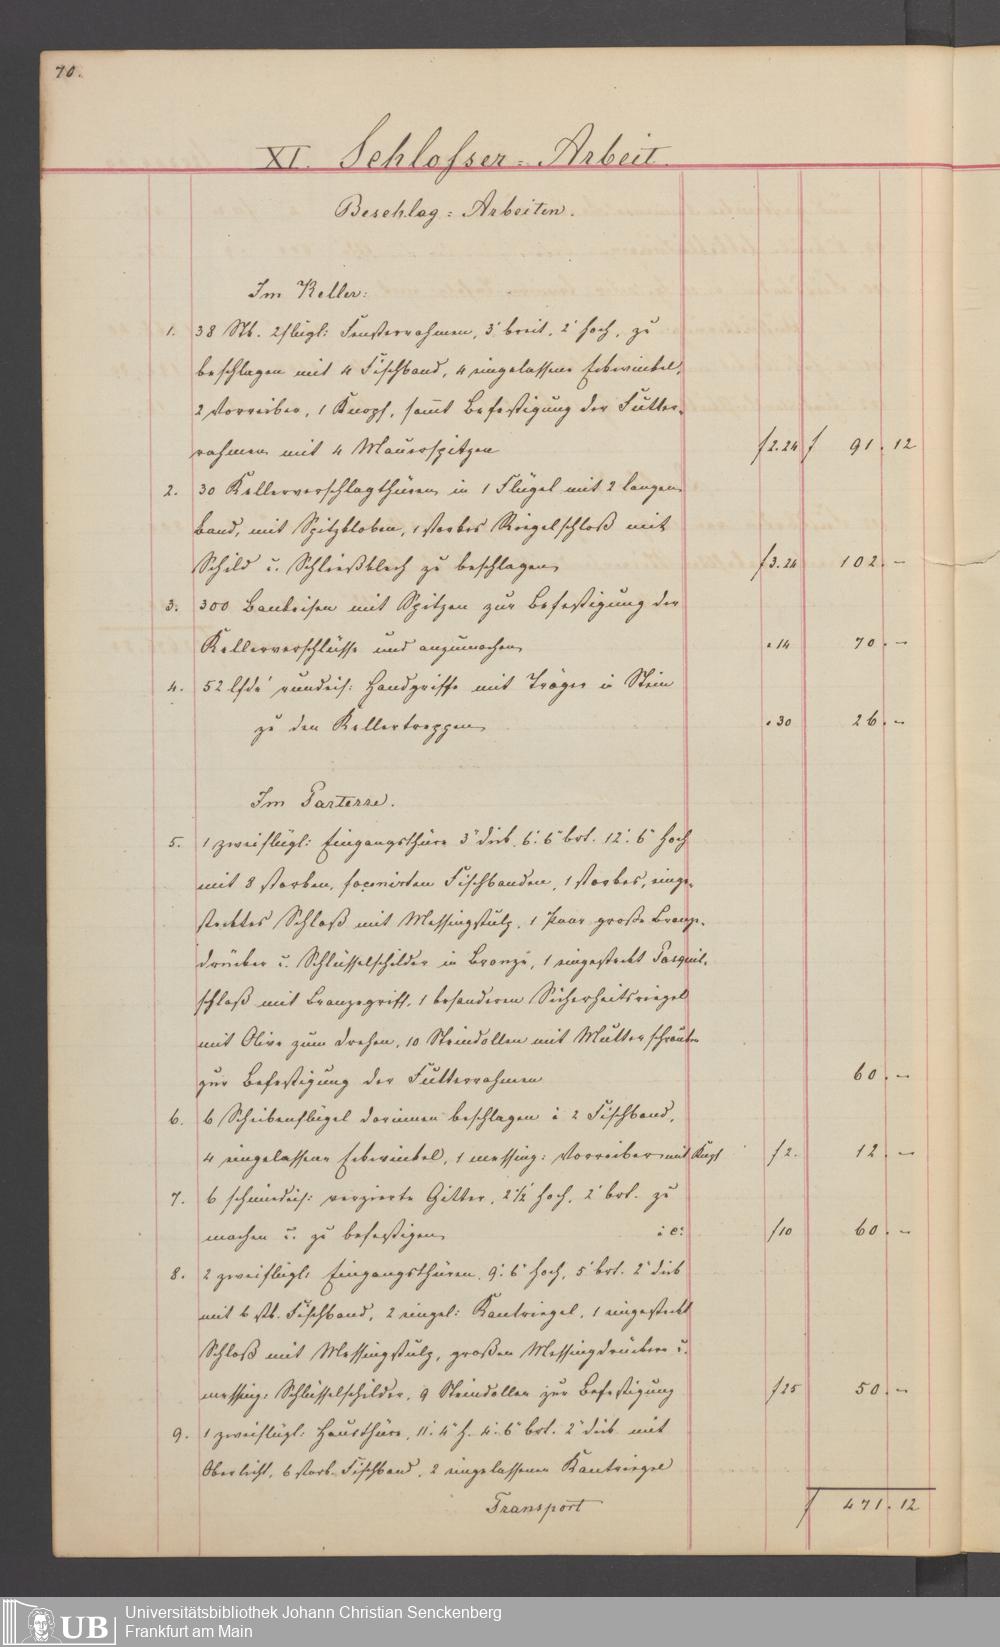 70.
XI. Schlosser=Arbeit.
Beschlag=Arbeiten.
Im Keller:
1. 38 Stk. 2flügl: Fensterrahmen, 3' breit, 2' hoch, zu
beschlagen mit 4 Fischband, 4 eingelassene Eckwinkel,
2 Vorreiber, 1 Knopf, samt Befestigung der Futter-
rahmen mit 4 Mauerspitzen f 2.24 f 91. 12
2. 30 Kellerverschlagthüren in 1 Flügel mit 2 langen
Band, mit Spitzkloben, 1 starkes Riegelschloß mit
Schild u. Schließblech zu beschlagen f 3.24 102. –
3. 300 Bankeisen mit Spitzen zur Befestigung der
Kellerverschlüsse und anzumachen " 14 70. –
4. 52 lfde' rundeis: Handgriffe mit Träger in Stein
zu den Kellertreppen " 30 26. –
Im Parterre.
5. 1 zweiflügl: Eingangsthüre 3" dick, 6'. 6" brt. 12'. 6" hoch
mit 8 starken, façonirten Fischbanden, 1 starkes, einge-
stecktes Schloß mit Messingstulp, 1 Paar große Bronze-
drücker u. Schlüsselschilder in Bronze, 1 eingesteckt Pasquil-
schloß mit Bronzegriff, 1 besonderen Sicherheitsriegel
mit Olive zum drehen, 10 Steindollen mit Mutterschrauben
zur Befestigung der Futterrahmen 60. –
6. 6 Scheibenflügel darinnen beschlagen à 2 Fischband,
4 eingelassene Eckwinkel, 1 messing: Vorreiber mit Knopf f 2. 12. –
7. 6 schmiedeis: verzierte Gitter, 2 1/2' hoch, 2' brt. zu
machen u. zu befestigen f 10 60. –
8. 2 zweiflügl: Eingangsthüren, 9'. 6" hoch, 5' brt. 2" dick
mit 6 stk. Fischband, 2 eingel: Kantriegel, 1 eingesteckt
Schloß mit Messingstulp, großen Messingdrückern u.
messing: Schlüsselschilder, 9 Steindollen zur Befestigung f 25 50. –
9. 1 zweiflügl: Hausthüre, 11'. 4" h. 4'. 6" brt. 2" dick mit
Oberlicht, 6 stark. Fischband, 2 eingelassenen Kantriegel
Transport f 471. 12
UB
Universitätsbibliothek Johann Christian Senckenberg
Frankfurt am Main